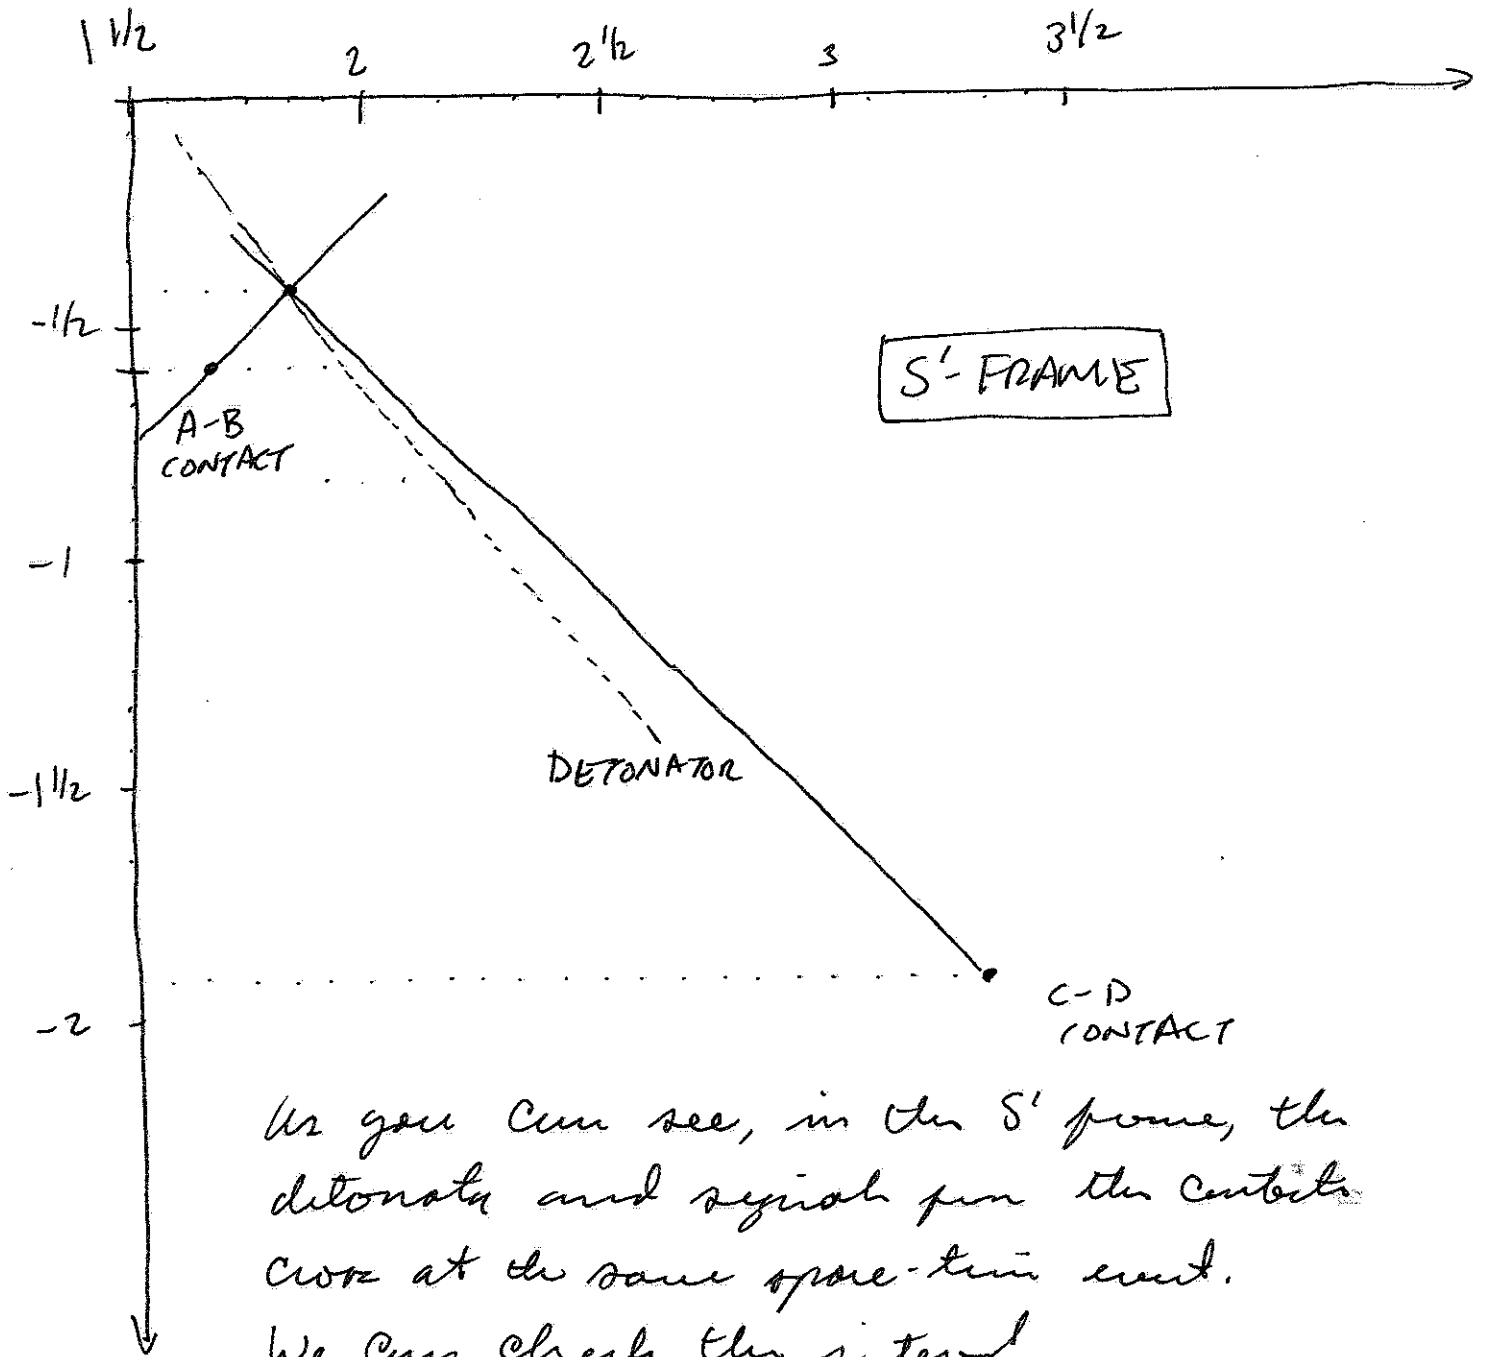 1 1/2
2
2 1/2
3
3 1/2
-1/2
S'-FRAME
A-B
CONTACT
-1
DETONATOR
-1 1/2
C-D
CONTACT
-2
As you can see, in the S' frame, the
detonator and signals from the contacts
cross at the same space-time event.
We can check this